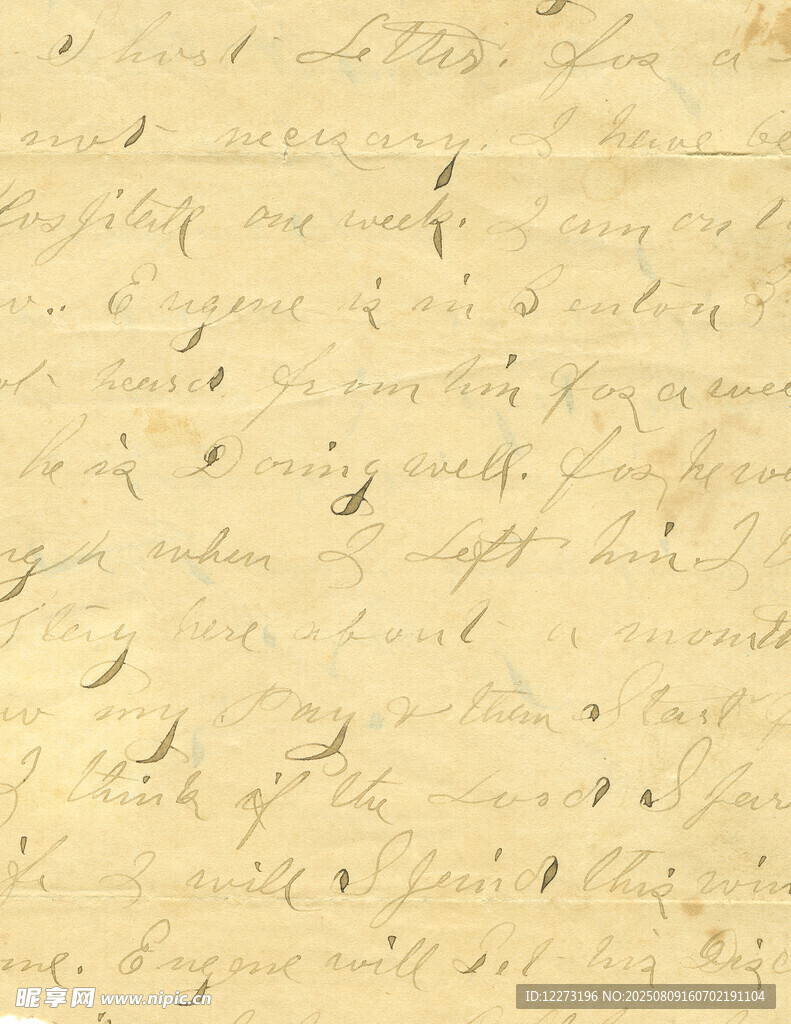 Short Letter. for a
not necizary. I have be
Hospitale one week. I am on
Eugene is in Benton &
heard from him for a wee
he is Doring well. for he we
when I Left him I
Stay here about a month
my Pay & then Start f
I think if the Lord Spar
life I will Spend this win
me. Eugene will Get his Disc
昵享网 www.nipic.cn
ID:12273196 NO:20250809160702191104